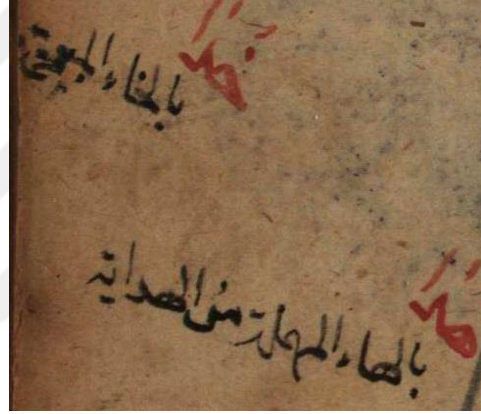 بالخاء المعجمة
بالهاء المهملة من الهداية